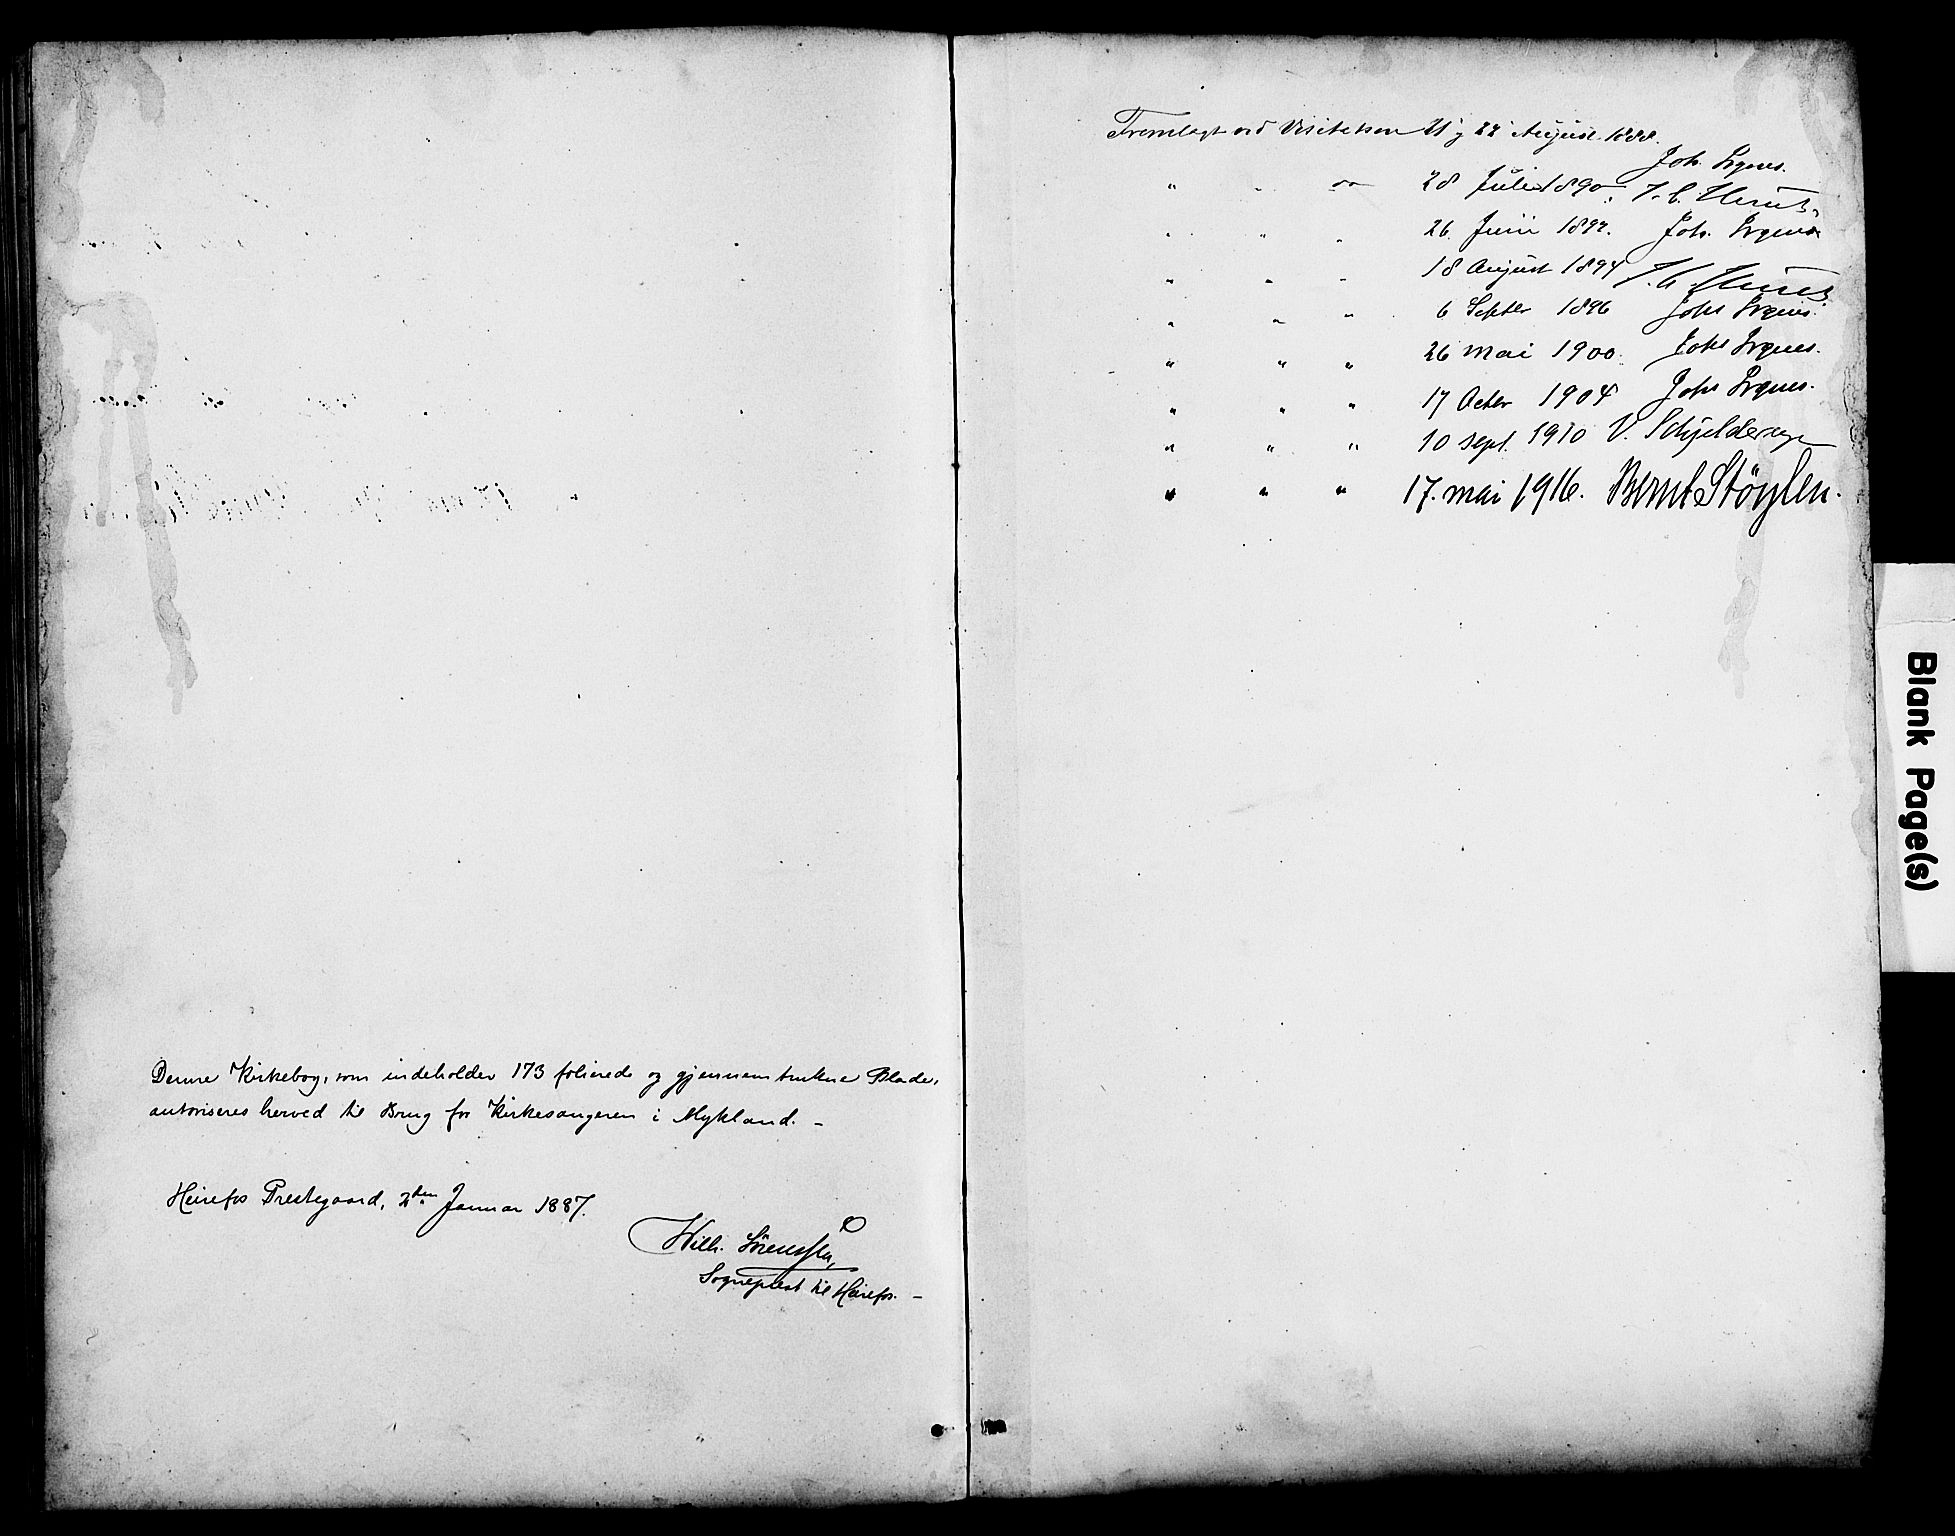 Denne Kirkebog, som indeholder 173 folierede og gjennemtrukne Blade,
autoriseres herved til Brug for Kirkesangeren i Mykland. –
Heirefos Prestegaard, 2den Januar 1887.
Wilh. Sörenssen,
Sogneprest til Heirefos. –
Fremlagt ved Visitatsen 21 & 22 August 1888.
Joh. Irgens.
" " 28 Juli 1890. J. C. Heuch
" " " 26. Juni 1892. Joh. Irgens
" " " 18 August 1894 J. C. Heuch
" " " 6 Septbr 1896 Johs Irgens.
" " " 26 mai 1900. Johs Irgens.
" " " 17 Octbr 1904 Johs Irgens.
" " " 10 sept. 1910 V. Schjelderup
" " " 17. mai 1916. Bernt Stöylen.
Blank Page(s)